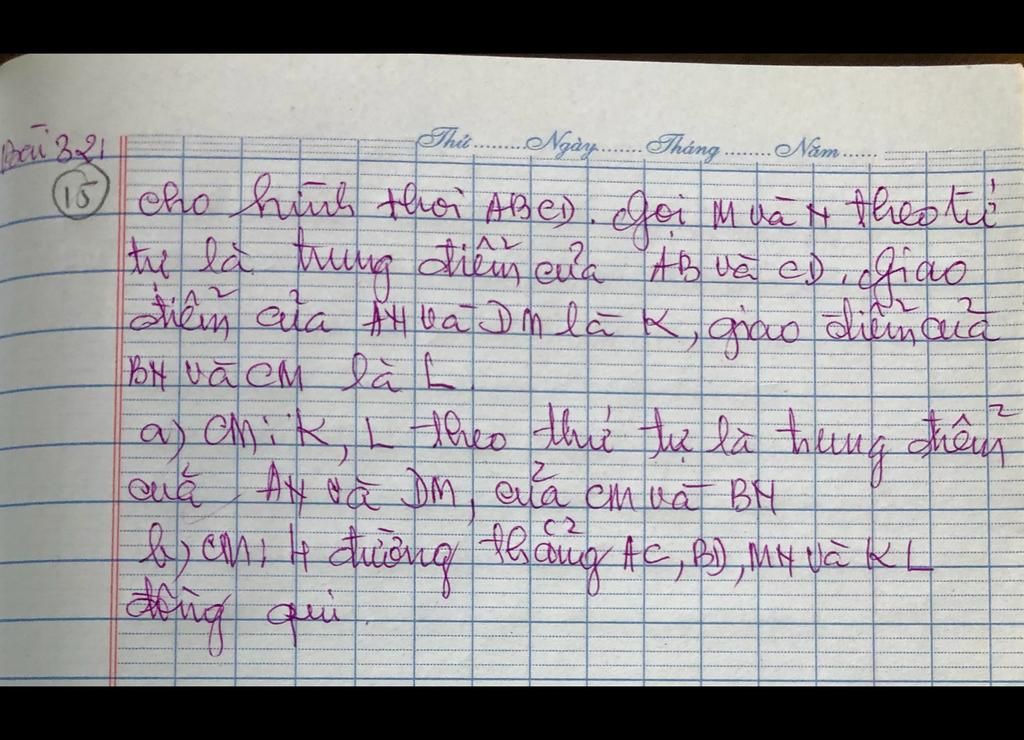 Thứ.........Ngày.......Tháng.......Năm......
Bài 321
15
cho hình thoi ABCD. Gọi M và N theo tứ
tự là trung điểm của AB và CD. Giao
điểm của AN và DM là K, giao điểm của
BN và CM là L
a) CM: K, L theo thứ tự là trung điểm
của AN và DM, của CM và BN
b) CM: 4 đường thẳng AC, BD, MN và KL
đồng qui.